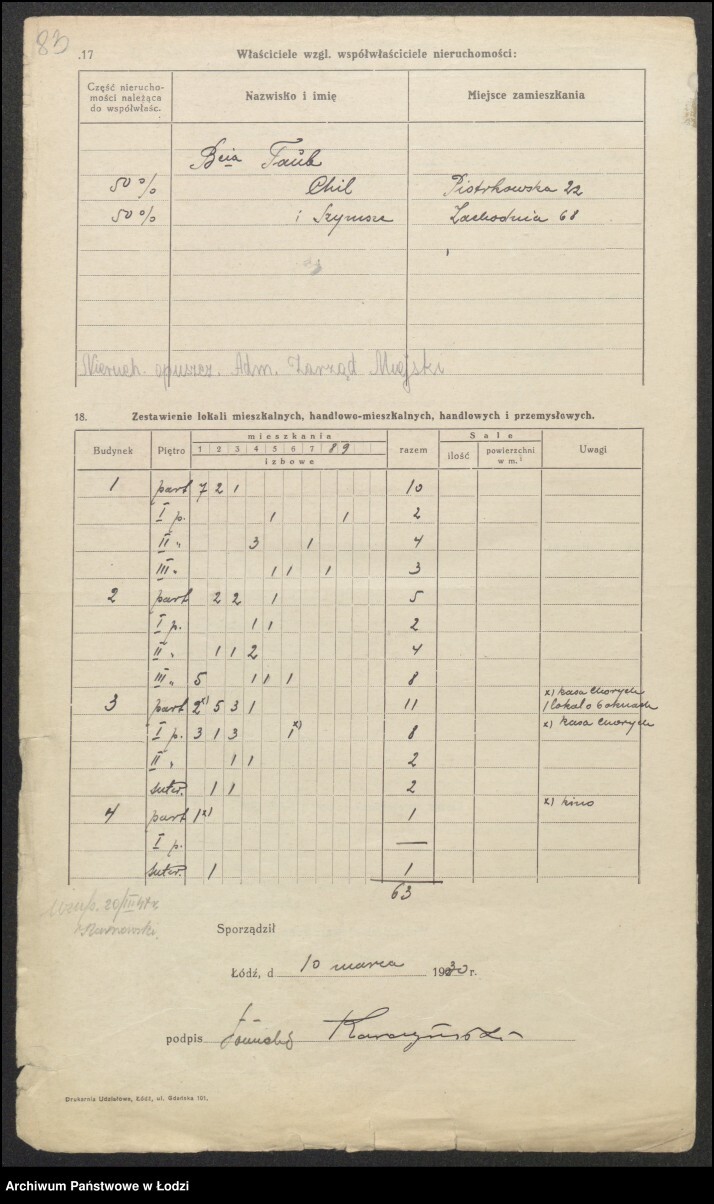 83
.17 Właściciele wzgl. współwłaściciele nieruchomości:
Część nierucho-
mości należąca
do współwłaśc.
Nazwisko i imię
Miejsce zamieszkania
Bcia Taub
50% Chil Piotrkowska 22
50% i Szymsze Zachodnia 68
Nieruch. opuszcz. Adm. Zarząd Miejski
18. Zestawienie lokali mieszkalnych, handlowo-mieszkalnych, handlowych i przemysłowych.
Budynek Piętro mieszkania razem Sale Uwagi
1 2 3 4 5 6 7 8 9 ilość powierzchni
izbowe w m.²
1 part 7 2 1 10
I p. 1 1 2
II " 3 1 4
III " 1 1 1 3
2 part 2 2 1 5
I p. 1 1 2
II " 1 1 2 4
III " 5 1 1 1 8
x) kasa chorych
3 part 2x) 5 3 1 11 1 lokal o 6 oknach
I p. 3 1 3 1x) 8 x) kasa chorych
II " 1 1 2
suter. 1 1 2
4 part 1x) 1 x) kino
I p. —
suter. 1 1
63
Sporządził
Łódź, d 10 marca 1930 r.
podpis
Drukarnia Udziałowa, Łódź, ul. Gdańska 101.
Archiwum Państwowe w Łodzi